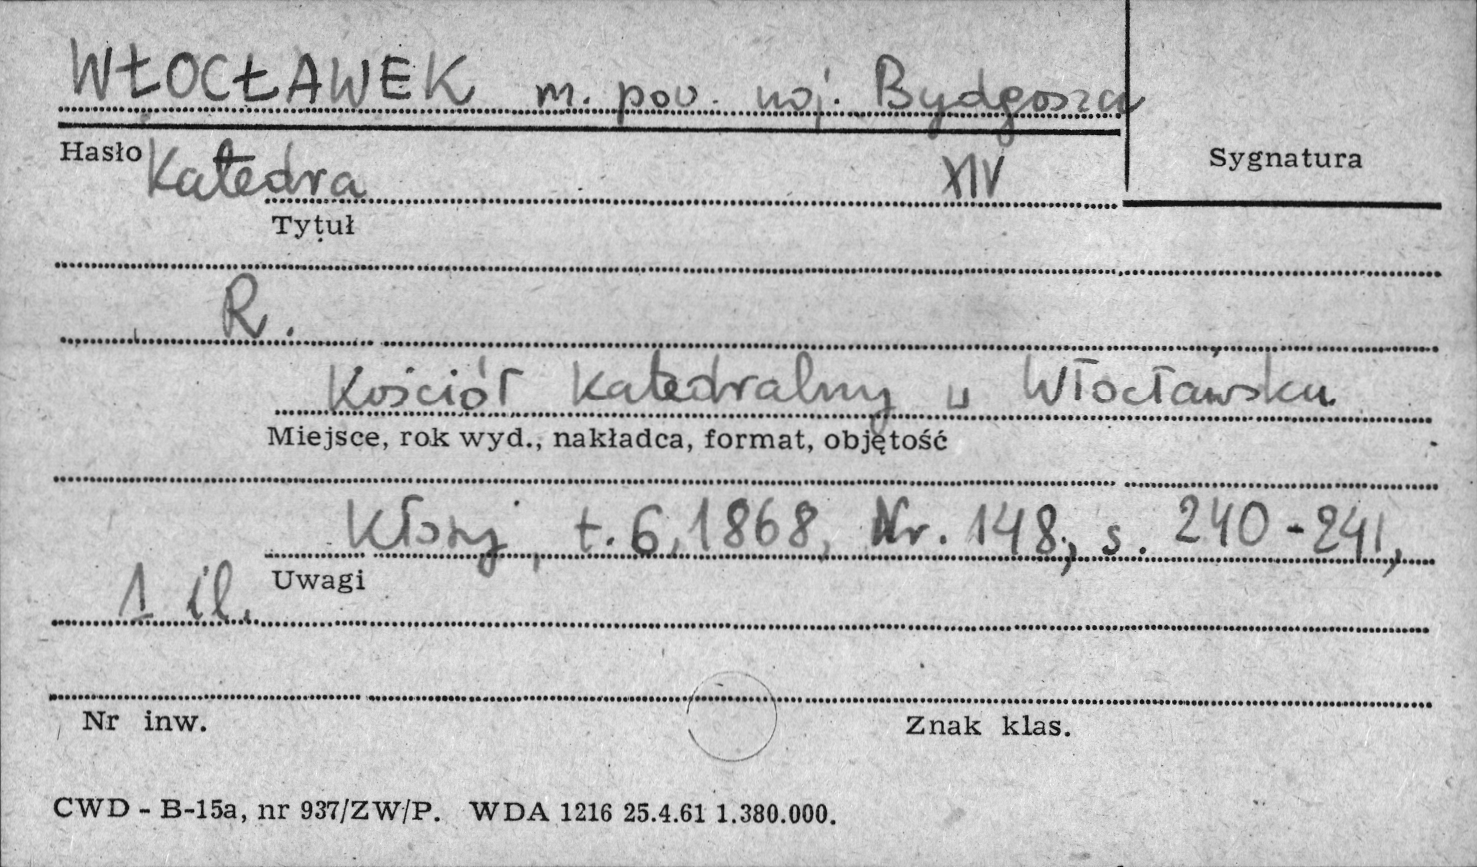 WŁOCŁAWEK m. pow. woj. Bydgoszcz
Hasło Katedra XIV Sygnatura
Tytuł
R.
Kościół Katedralny w Włocławsku
Miejsce, rok wyd., nakładca, format, objętość
Kłosy, t. 6, 1868, Nr. 148, s. 240-241,
Uwagi
1 il.
Nr inw. Znak klas.
CWD - B-15a, nr 937/ZW/P. WDA 1216 25.4.61 1.380.000.